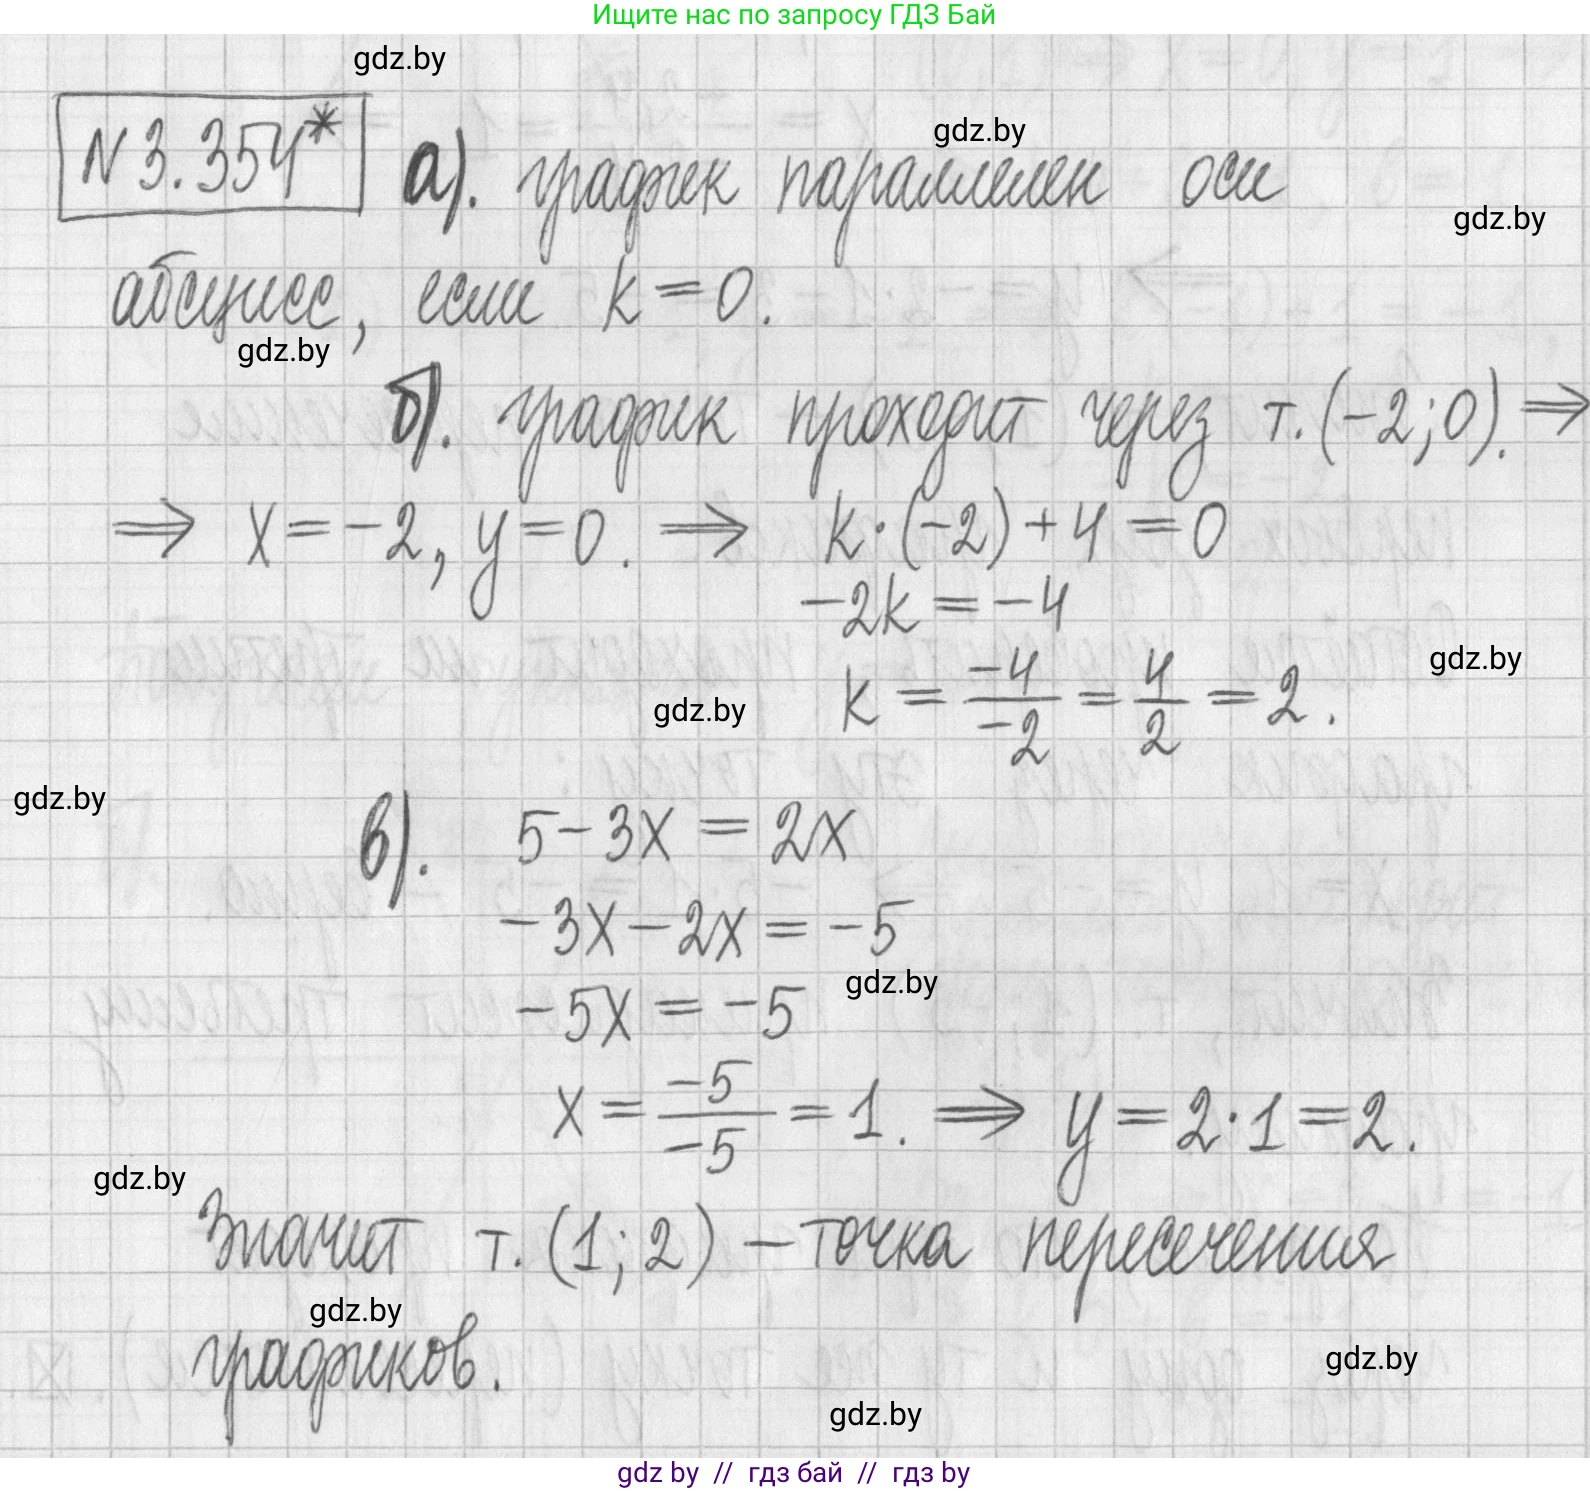 Ищите нас по запросу ГДЗ Бай
gdz.by
N 3.354* а). график параллелен оси
gdz.by
gdz.by
абсцисс, если k = 0.
gdz.by
б). график проходит через т. (-2; 0). ⇒
⇒ x = -2, y = 0. ⇒ k · (-2) + 4 = 0
-2k = -4
gdz.by
k = -4/-2 = 4/2 = 2.
gdz.by
gdz.by
в). 5 - 3x = 2x
-3x - 2x = -5
gdz.by
-5x = -5
x = -5/-5 = 1. ⇒ y = 2 · 1 = 2.
gdz.by
Значит т. (1; 2) - точка пересечения
gdz.by
графиков.
gdz.by
gdz.by
gdz by // гдз бай // гдз by